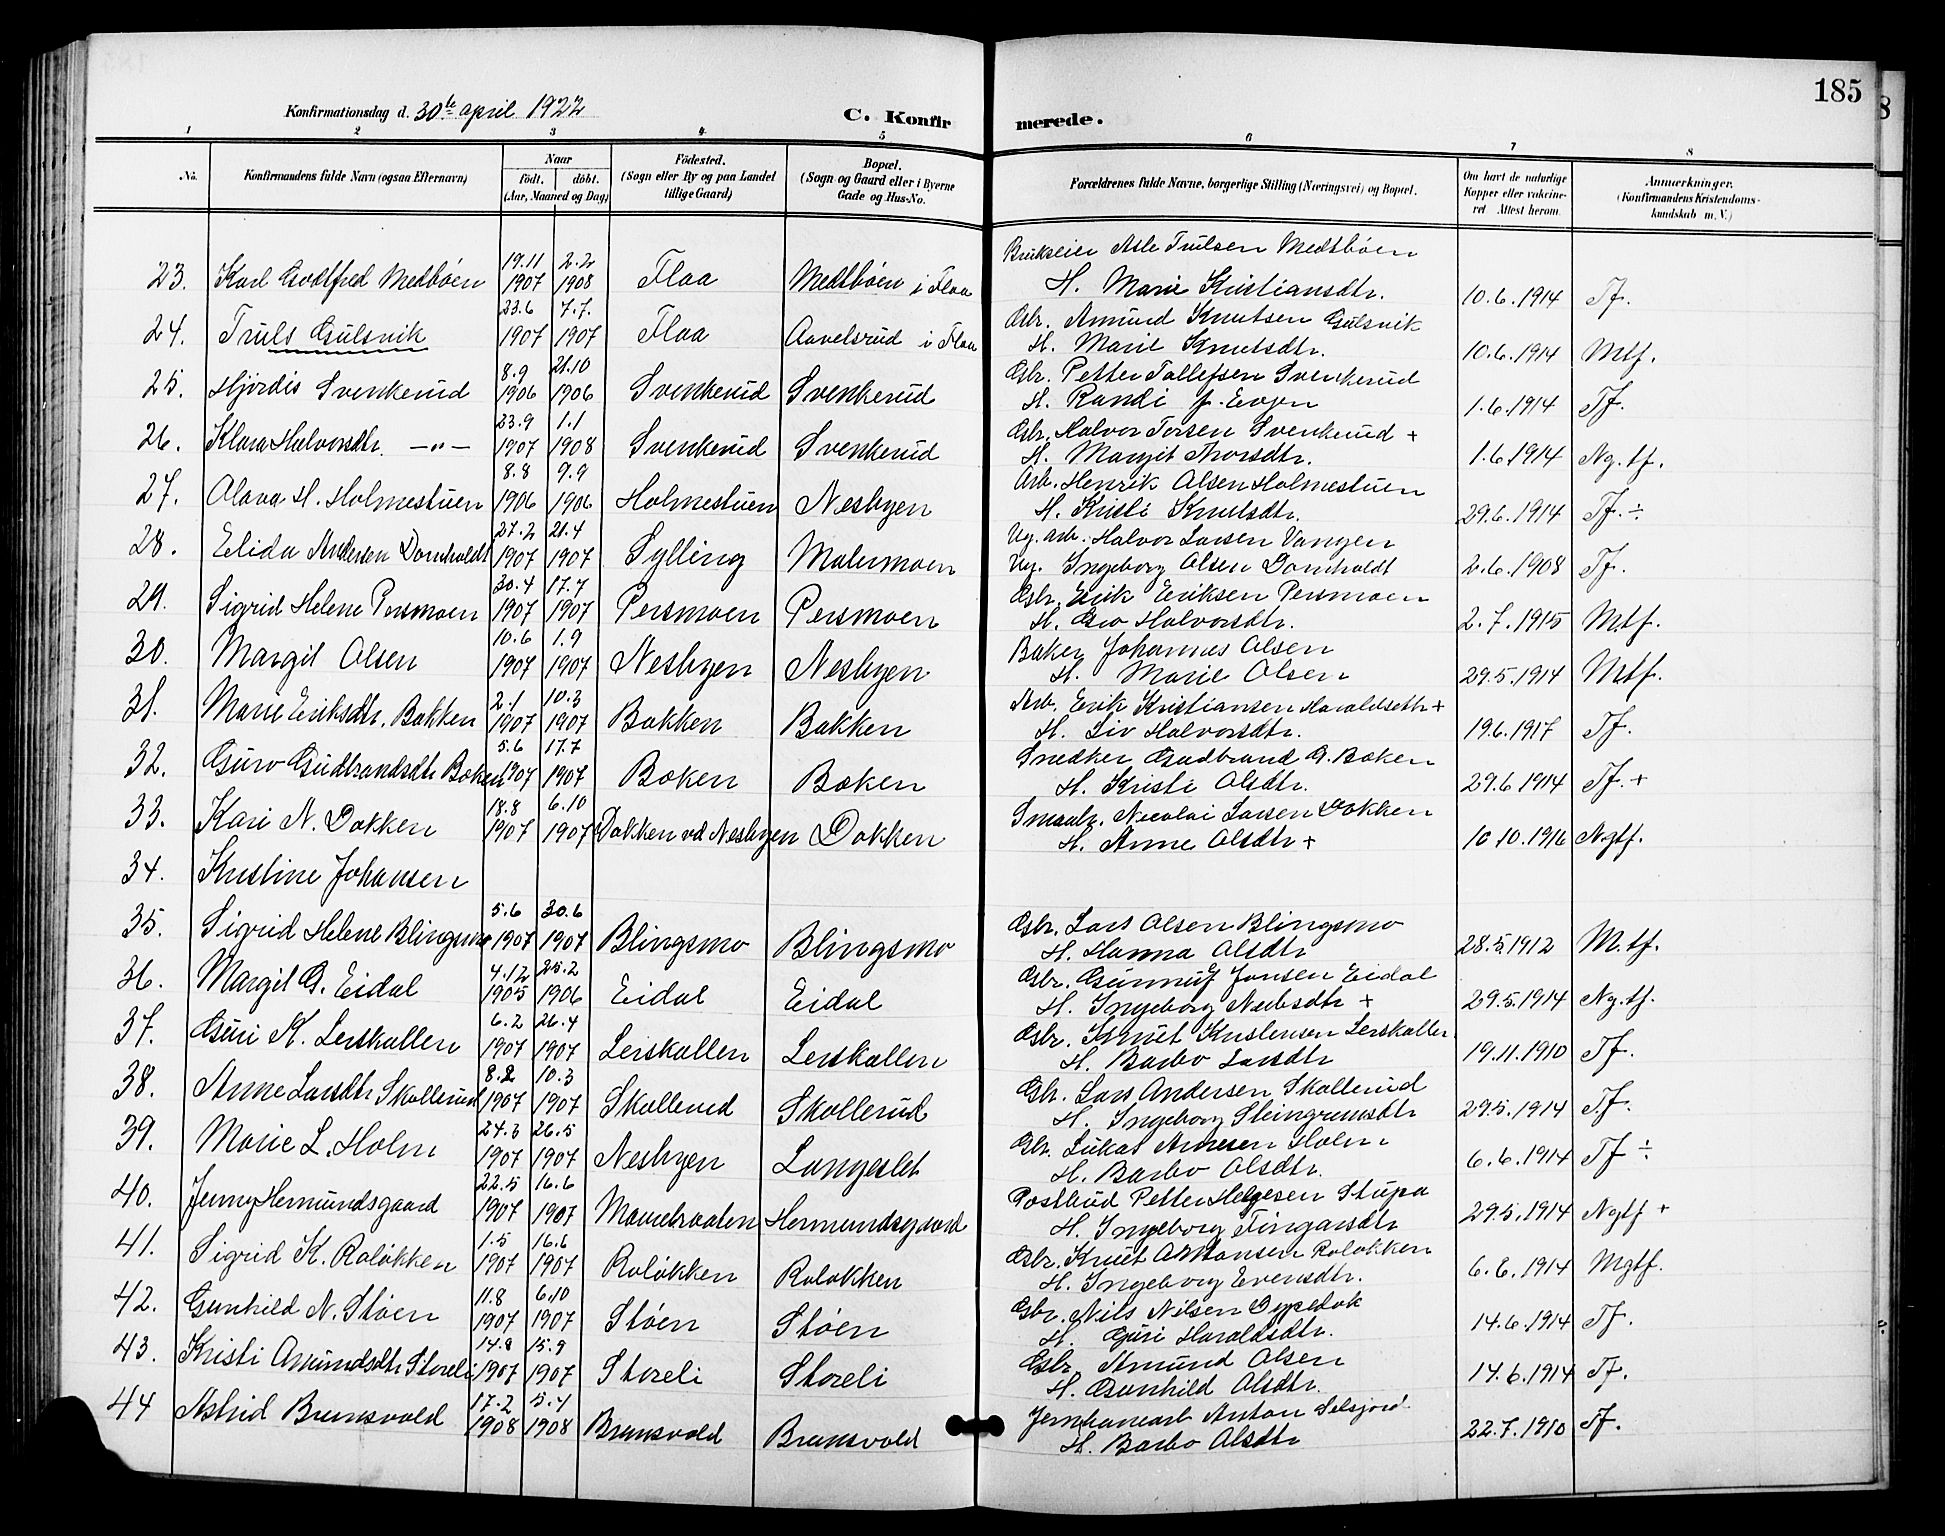 185
Konfirmationsdag d. 30te april 1922
C. Konfirmerede.
1 2 3 4 5 6 7 8
No. Konfirmandens fulde Navn (ogsaa Efternavn) Naar födt. döbt. (Aar, Maaned og Dag) Födested. (Sogn eller By og paa Landet tillige Gaard) Bopæl. (Sogn og Gaard eller i Byerne Gade og Hus-No. Forældrenes fulde Navne, borgerlige Stilling (Næringsvei) og Bopæl. Om havt de naturlige Kopper eller vakcineret. Attest herom. Anmærkninger. (Konfirmandens Kristendomskundskab m. V.)
19.11 2.2 Brukseier Asle Trulsen Medbøen
23. Karl Godtfred Medbøen 1907 1908 Flaa Medbøen i Flaa H. Marie Kristiansdtr. 10.6.1914 Tf.
23.6 7.7. Gbr. Amund Knutsen Gulsvik
24. Truls Gulsvik 1907 1907 Flaa Aavelsrud i Flaa H. Marit Knutsdtr. 10.6.1914 Mtf.
8.9 21.10 Gbr. Petter Tollefsen Svenkerud
25. Hjördis Svenkerud 1906 1906 Svenkerud Svenkerud H. Randi f. Evjen 1.6.1914 Tf.
23.9 1.1 Gbr. Halvor Torsen Svenkerud +
26. Klara Halvorsdtr. —"— 1907 1908 Svenkerud Svenkerud H. Margit 1.6.1914 Ng.tf.
8.8 9.9 Arb. Henrik Olsen Holmestuen
27. Olava H. Holmestuen 1906 1906 Holmestuen Nesbyen H. Kristi Knutsdtr. 29.6.1914 Tf. ÷
27.2 21.4 Ug. arb. Halvor Larsen Vangen
28. Elida Andersen Domholdt 1907 1907 Sylling Malermoen Ug. Ingeborg Olsen Domholdt 2.6.1908 Tf.
30.4 17.7 Gbr. Erik Eriksen Persmoen
29. Sigrid Helene Persmoen 1907 1907 Persmoen Persmoen H. Gro Halvorsdtr. 2.7.1915 Mtf.
10.6 1.9 Baker Johannes Olsen
30. Margit Olsen 1907 1907 Nesbyen Nesbyen H. Marie Olsen 29.5.1914 Mtf.
2.1 10.3 Arb. Erik Kristiansen Haraldseth +
31. Marie Eriksdtr. Bakken 1907 1907 Bakken Bakken H. Liv Halvorsdtr. 19.6.1917 Tf.
5.6 17.7 Snedker Gudbrand G. Boken
32. Guro Gudbrandsdtr Boken 1907 1907 Boken Boken H. Kristi Olsdtr. 29.6 1914 Tf. +
18.8 6.10 Smaabr. Nicolai Larsen Dokken
33. Kari N. Dokken 1907 1907 Dokken ved Nesbyen Dokken H. Anne Olsdtr + 10.10.1916 Ngtf.
34. Kristine Johansen
5.6 30.6 Gbr. Lars Olsen Blingsmo
35. Sigrid Helene Blingsmo 1907 1907 Blingsmo Blingsmo H. Hanna Olsdtr 28.5.1912 M.tf.
4.12 25.2 Gbr. Gunnulf Jonsen Eidal
36. Margit G. Eidal 1905 1906 Eidal Eidal H. Ingeborg Nubsdtr + 29.5.1914 Ng.tf.
6.2 26.4 Gbr. Knut Kristensen Lerskallen
37. Guri K. Lerskallen 1907 1907 Lerskallen Lerskallen H. Barbo Larsdtr 19.11.1910 Tf.
8.2 10.3 Gbr. Lars Andersen Skallerud
38. Anne Larsdtr Skallerud 1907 1907 Skallerud Skallerud H. Ingeborg Steingrimsdtr 29.5.1914 Tf.
24.3 26.5 Gbr. Lukas Arnesen Holm
39. Marie L. Holm 1907 1907 Nesbyen Langeslet H. Barbo Olsdtr. 6.6.1914 Tf ÷
22.5 16.6 Postbud Petter Helgesen Stupa
40. Jenny Hermundsgaard 1907 1907 Hermundsgaard H. Ingeborg Fingarsdtr 29.5.1914 Ngtf +
1.5 16.6 Gbr. Knut Rolökken
41. Sigrid K. Rolökken 1907 1907 Rolökken Rolökken H. Ingeborg Evensdtr. 6.6.1914 Mgtf.
11.8 6.10 Gbr. Nils Nilsen Dypedok
42. Gunhild N. Støen 1907 1907 Støen Støen H. Guri Haraldsdtr. 14.6.1914 Tf.
14.8 15.9 Gbr. Amund Olsen
43. Kristi Amundsdtr Storeli 1907 1907 Storeli Storeli H. Gunhild Olsdtr. 14.6.1914 Tf.
17.2 5.4 Jernbanearb. Anton Selsjord
44 Astrid Brunsvold 1908 1908 Brunsvold Brunsvold H. Barbo Olsdtr 22.7.1910 Tf.